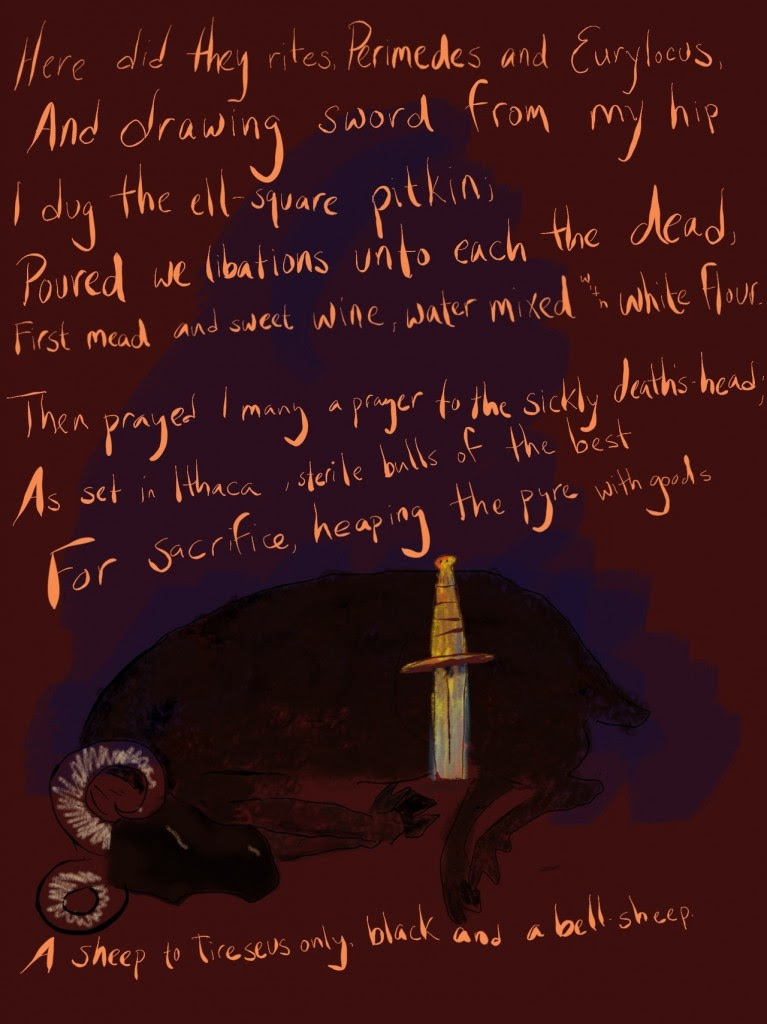 Here did they rites, Perimedes and Eurylocus,
And drawing sword from my hip
I dug the ell-square pitkin;
Poured we libations unto each the dead,
First mead and sweet wine, water mixed with white flour.
Then prayed I many a prayer to the sickly death's-head;
As set in Ithaca, sterile bulls of the best
For sacrifice, heaping the pyre with goods
A sheep to Tireseus only, black and a bell-sheep.